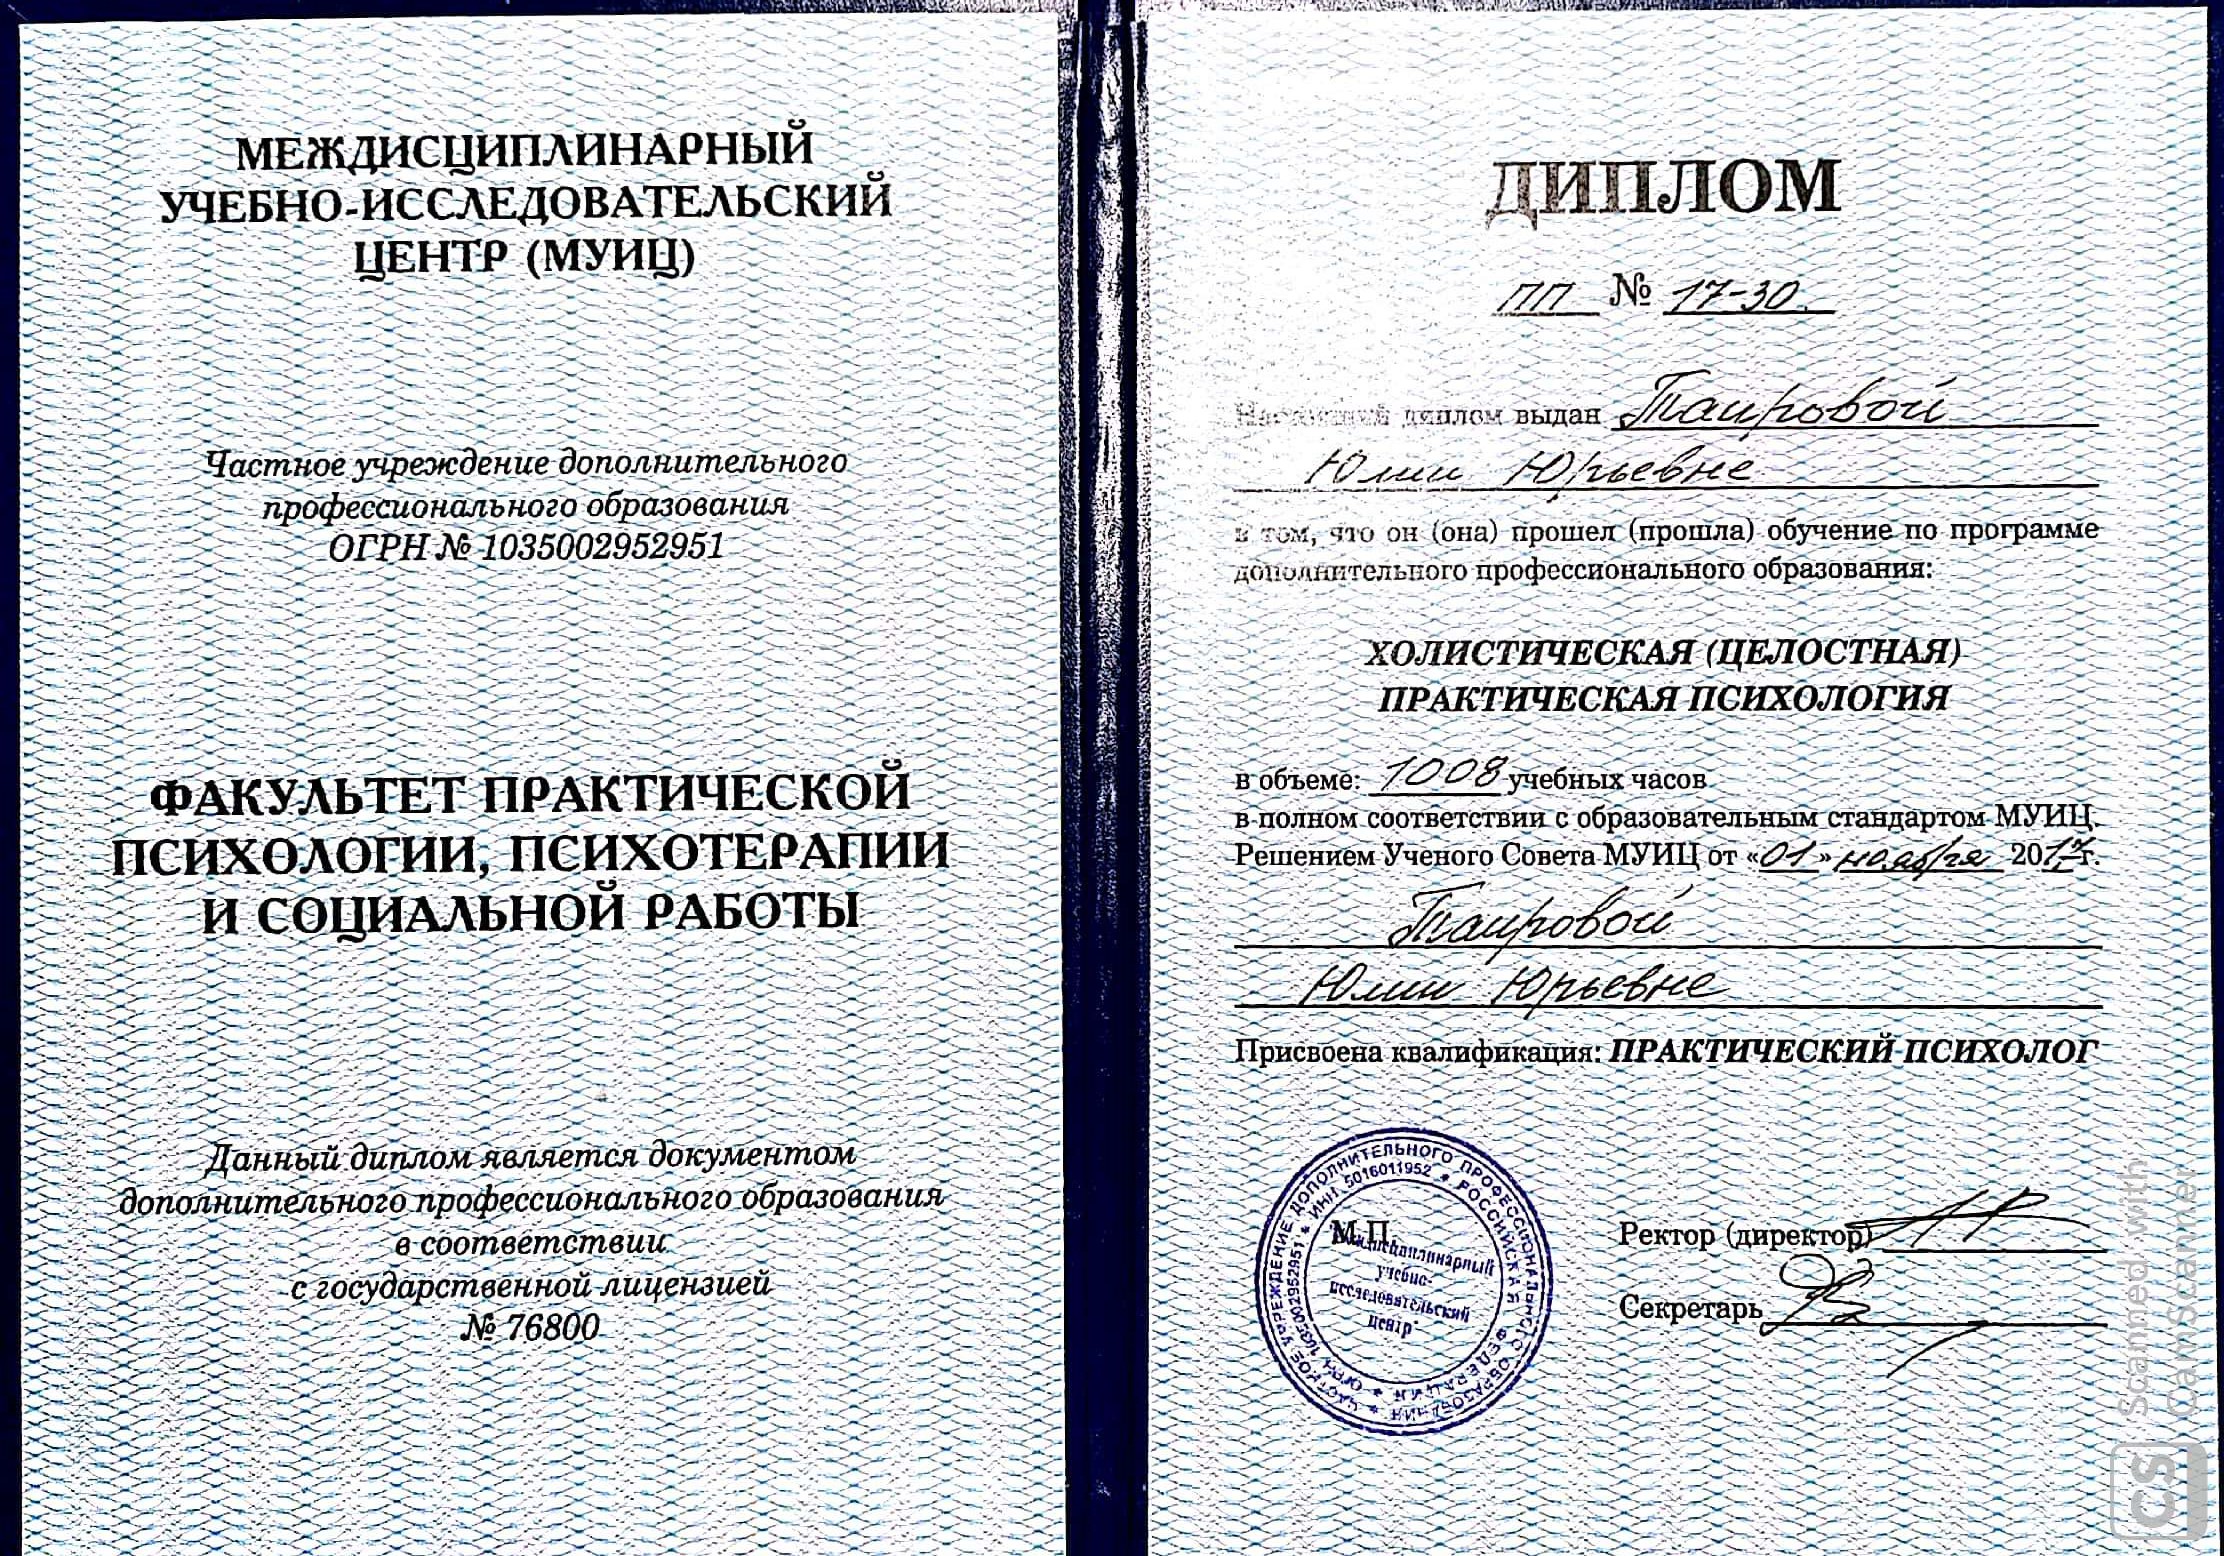 МЕЖДИСЦИПЛИНАРНЫЙ
УЧЕБНО-ИССЛЕДОВАТЕЛЬСКИЙ
ЦЕНТР (МУИЦ)
Частное учреждение дополнительного
профессионального образования
ОГРН № 1035002952951
ФАКУЛЬТЕТ ПРАКТИЧЕСКОЙ
ПСИХОЛОГИИ, ПСИХОТЕРАПИИ
И СОЦИАЛЬНОЙ РАБОТЫ
Данный диплом является документом
дополнительного профессионального образования
в соответствии
с государственной лицензией
№ 76800
ДИПЛОМ
ПП № 17-30.
Настоящий диплом выдан Таировой
Юлии Юрьевне
в том, что он (она) прошел (прошла) обучение по программе
дополнительного профессионального образования:
ХОЛИСТИЧЕСКАЯ (ЦЕЛОСТНАЯ)
ПРАКТИЧЕСКАЯ ПСИХОЛОГИЯ
в объеме: 1008 учебных часов
в полном соответствии с образовательным стандартом МУИЦ.
Решением Ученого Совета МУИЦ от «01» ноября 2017г.
Таировой
Юлии Юрьевне
Присвоена квалификация: ПРАКТИЧЕСКИЙ ПСИХОЛОГ
ЧАСТНОЕ УЧРЕЖДЕНИЕ ДОПОЛНИТЕЛЬНОГО ПРОФЕССИОНАЛЬНОГО ОБРАЗОВАНИЯ
ОГРН 1035002952951 * ИНН 5016011952 * РОССИЙСКАЯ ФЕДЕРАЦИЯ *
М.П.
Междисциплинарный
учебно-
исследовательский
центр
Ректор (директор)
Секретарь
Scanned with
CamScanner
CS